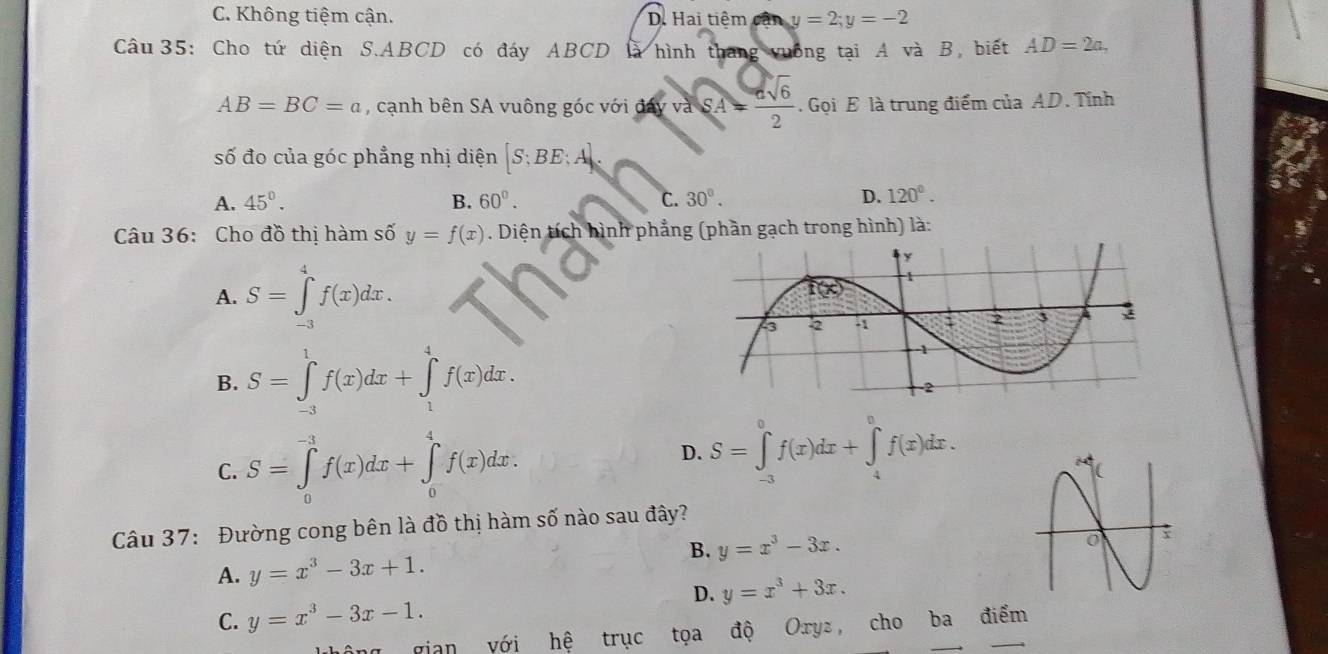 C. Không tiệm cận. D. Hai tiệm cận y = 2; y = −2
Câu 35: Cho tứ diện S.ABCD có đáy ABCD là hình thang vuông tại A và B, biết AD = 2a,
AB = BC = a, cạnh bên SA vuông góc với đáy và SA = a√6/2. Gọi E là trung điểm của AD. Tính
số đo của góc phẳng nhị diện [S; BE; A].
A. 45⁰. B. 60⁰. C. 30⁰. D. 120⁰.
Câu 36: Cho đồ thị hàm số y = f(x). Diện tích hình phẳng (phần gạch trong hình) là:
A. S = ∫₋₃⁴ f(x)dx.
B. S = ∫₋₃¹ f(x)dx + ∫₁⁴ f(x)dx.
y
1
f(x)
-3 -2 -1 1 2 3 x
-1
-2
C. S = ∫₀⁻³ f(x)dx + ∫₀⁴ f(x)dx. D. S = ∫₋₃⁰ f(x)dx + ∫₄⁰ f(x)dx.
Câu 37: Đường cong bên là đồ thị hàm số nào sau đây?
A. y = x³ − 3x + 1. B. y = x³ − 3x.
C. y = x³ − 3x − 1. D. y = x³ + 3x.
O x
gian với hệ trục tọa độ Oxyz, cho ba điểm
Thanh Thảo